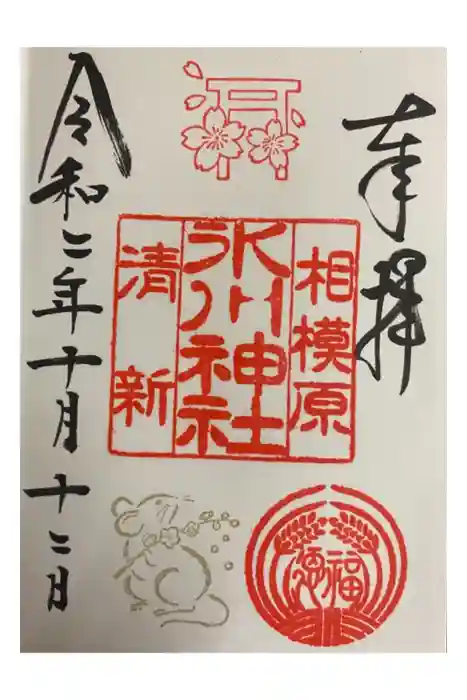 奉拝
相模原
氷川神社
清新
福
令和二年十月十二日